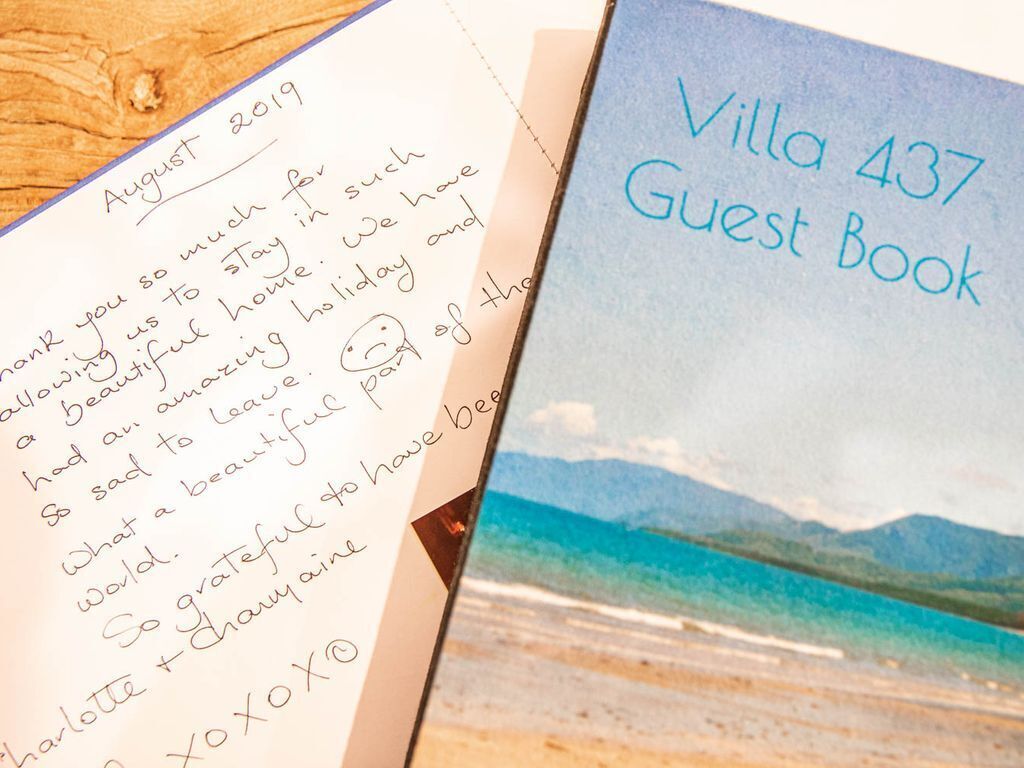 August 2019
hank you so much for
allowing us to stay in such
a beautiful home. We have
had an amazing holiday and
so sad to leave.
What a beautiful part of the
world.
So grateful to have bee
harlotte + Charmaine
XOXOXO
Villa 437
Guest Book